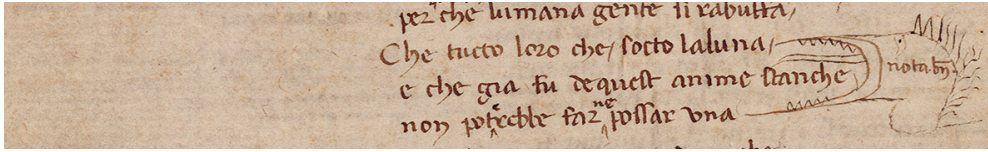 per che lumana gente si rabuffa,
Che tucto loro che, socto laluna,
e che gia fu dequest anime stanche
non poterebbe far ne possar una